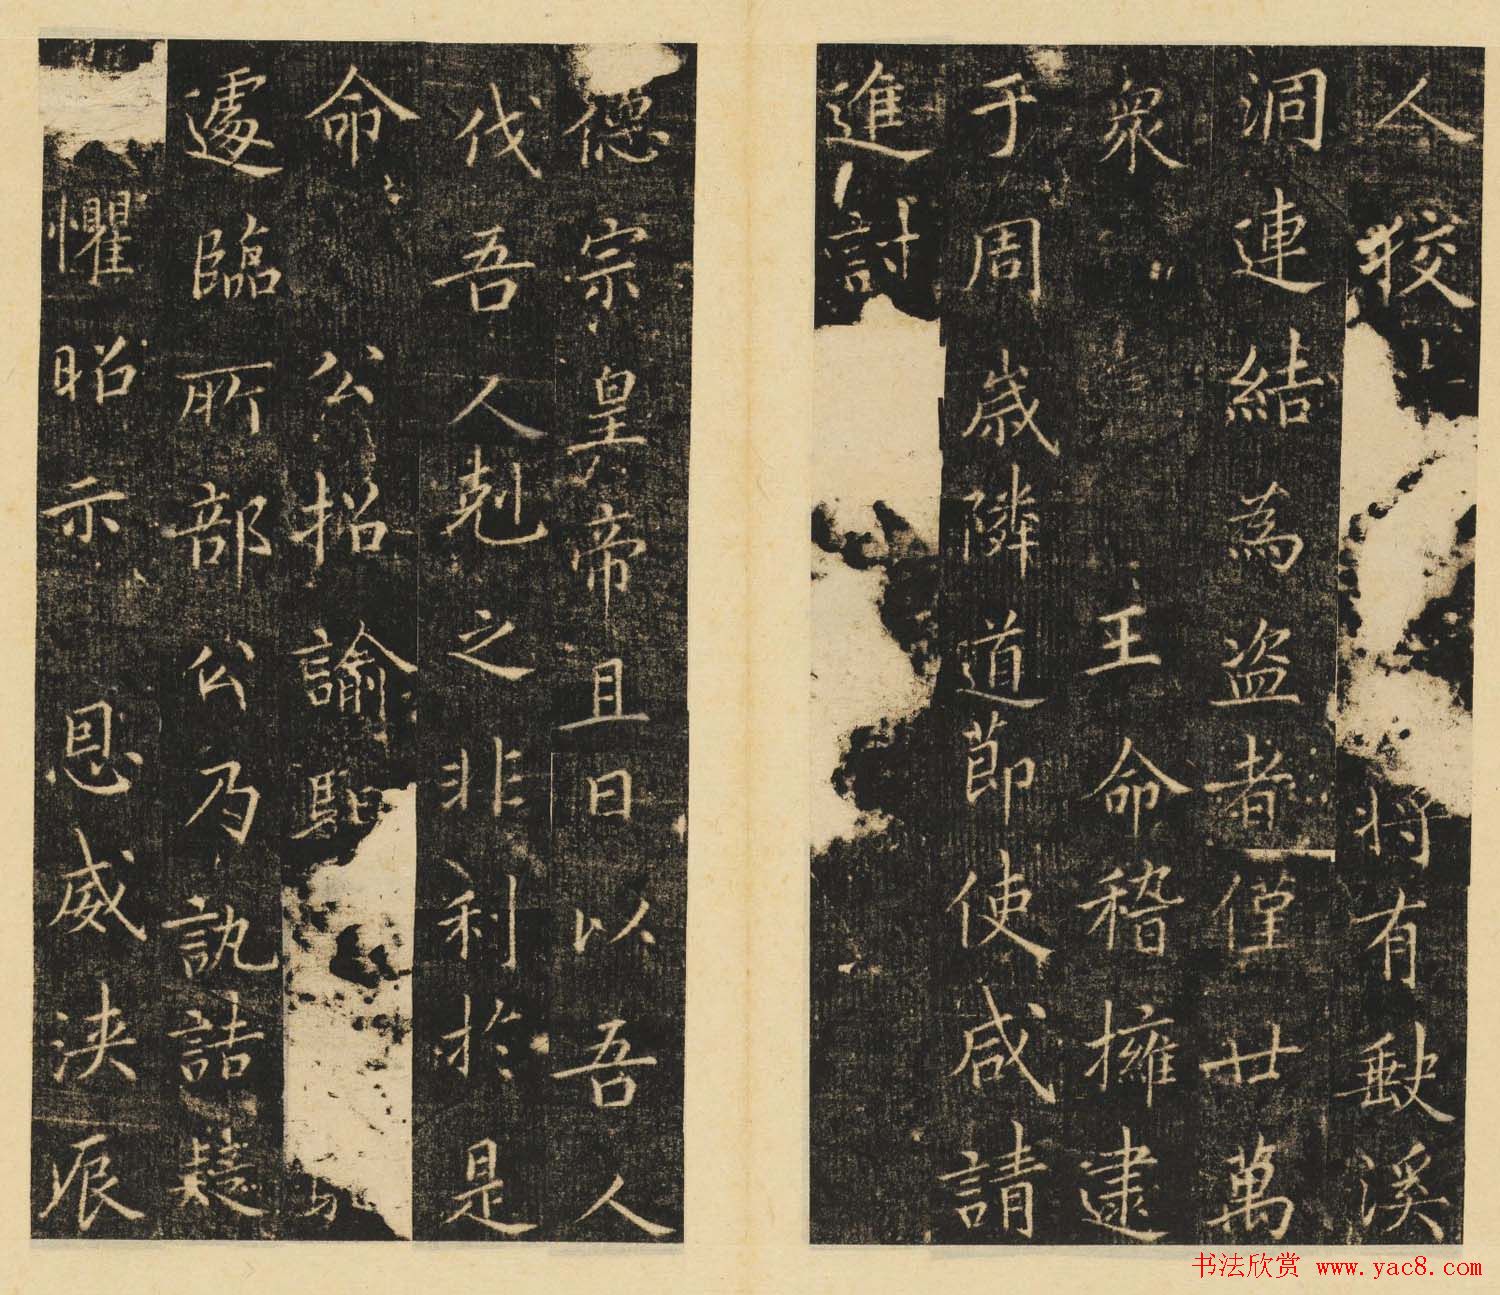 人狡將有獣溪
洞連結為盗者僅廿萬
衆王命稽擁逮
于周歲隣道節使咸請
進討
德宗皇帝且曰以吾人
伐吾人剋之非利於是
命公招諭
遽臨所部公乃訊詰疑
懼昭示恩威浹辰
书法欣赏 www.yac8.com